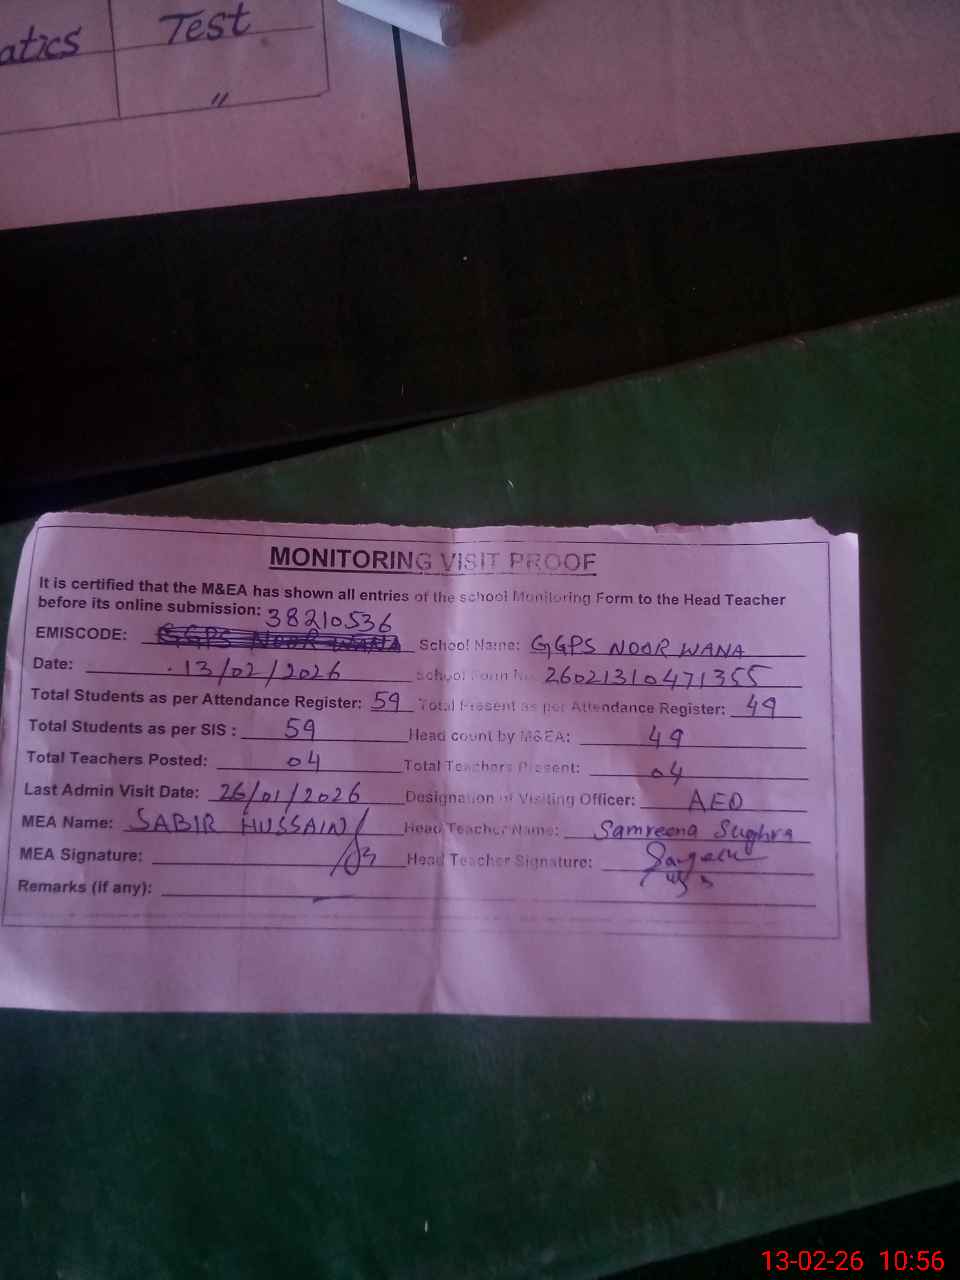 atics Test
"
MONITORING VISIT PROOF
It is certified that the M&EA has shown all entries of the school Monitoring Form to the Head Teacher
before its online submission: 38210536
EMISCODE: GGPS NOOR WANA School Name: GGPS NOOR WANA
Date: 13/02/2026 School Form No. 26021310471355
Total Students as per Attendance Register: 59 Total Present as per Attendance Register: 49
Total Students as per SIS : 59 Head count by M&EA: 49
Total Teachers Posted: 04 Total Teachers Present: 04
Last Admin Visit Date: 26/01/2026 Designation of Visiting Officer: AEO
MEA Name: SABIR HUSSAIN Head Teacher Name: Samreena Sughra
MEA Signature: Head Teacher Signature:
Remarks (if any):
13-02-26 10:56